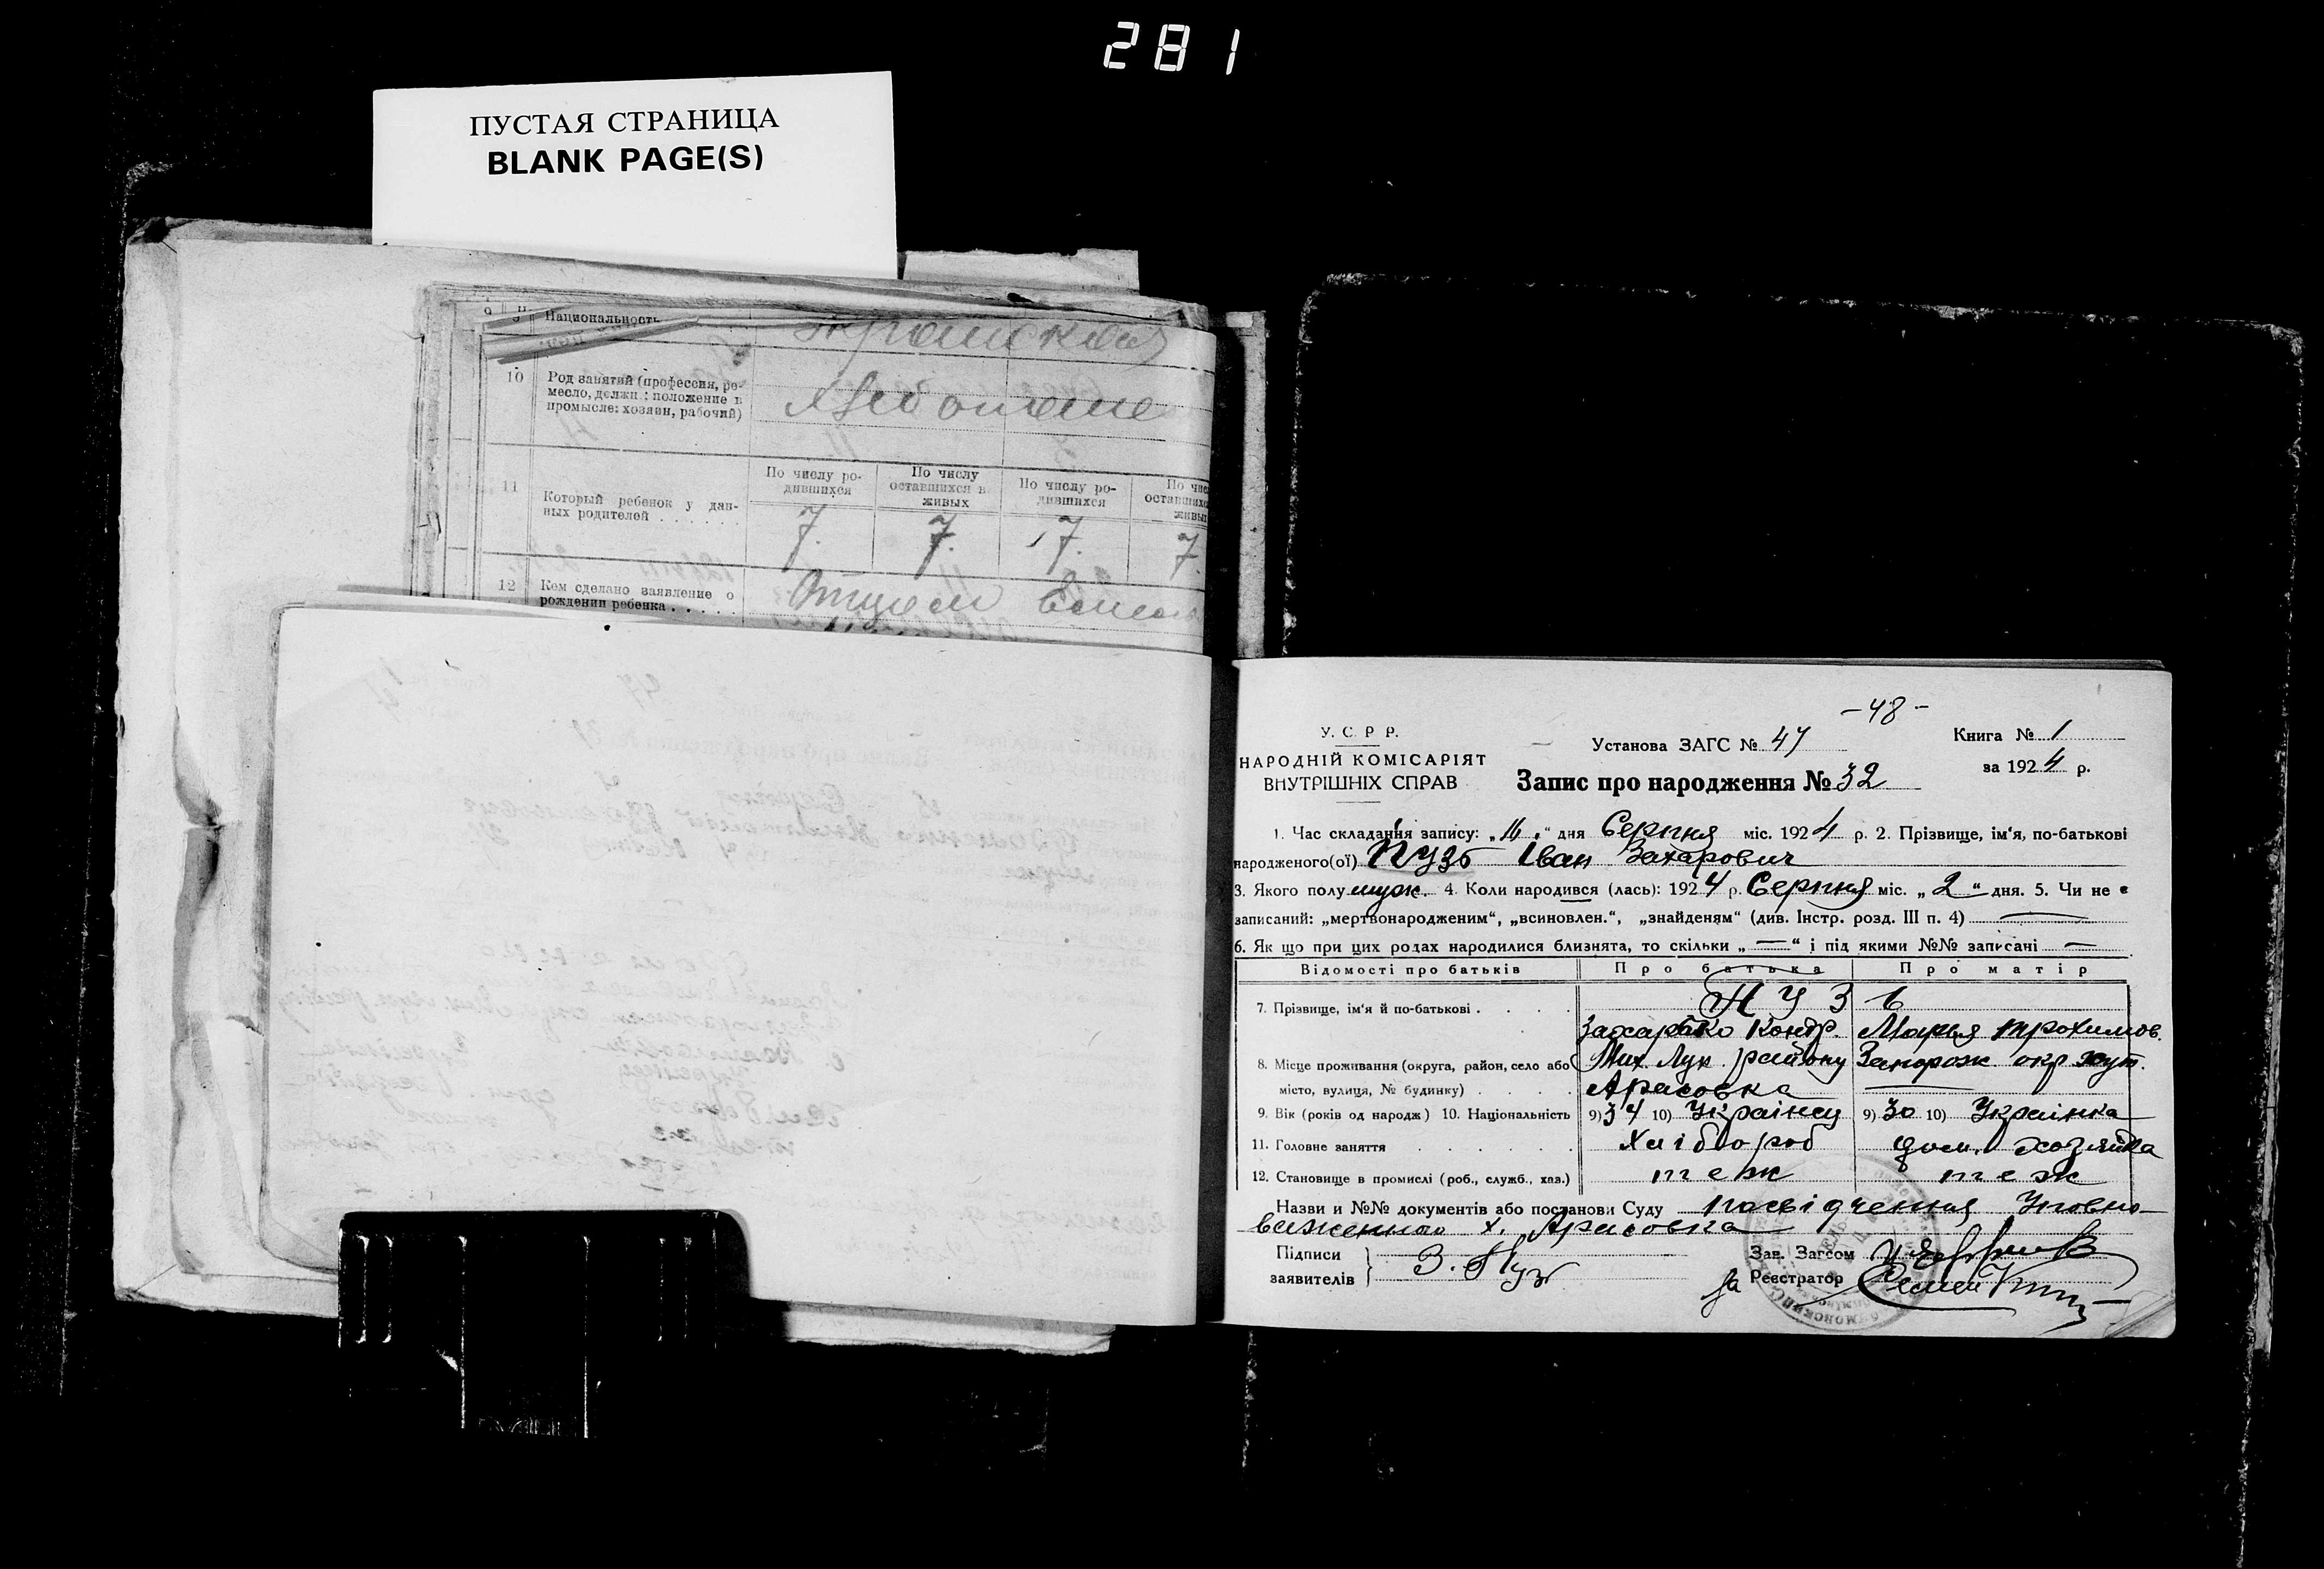 281
ПУСТАЯ СТРАНИЦА
BLANK PAGE(S)
9 Национальность
10 Род занятий (профессия, ре-
месло, должн.: положение в
промысле: хозяин, рабочий)
По числу ро-
дившихся
По числу
оставшихся в
живых
По числу ро-
дившихся
По чис
оставшихс
живы
11 Который ребенок у дан-
ных родителей . . . . . . .
7. 7. 7. 7.
12 Кем сделано заявление о
рождении ребенка . . . . . Отцом
-48-
У. С. Р. Р.
НАРОДНІЙ КОМІСАРІЯТ
ВНУТРІШНІХ СПРАВ
Установа ЗАГС № 47
Книга № 1
за 1924 р.
Запис про народження № 32
1. Час складання запису: „16“ дня Серпня міс. 1924 р. 2. Прізвище, ім'я, по-батькові
народженого(ої) Пузь Іван Захарович
3. Якого полу муж. 4. Коли народився (лась): 1924 р. Серпня міс. „2“ дня. 5. Чи не є
записаний: „мертвонародженим“, „всиновлен.“, „знайденям“ (див. Інстр. розд. III п. 4) —
6. Як що при цих родах народилися близнята, то скільки „—“ і під якими №№ записані —
Відомості про батьків Про батька Про матір
7. Прізвище, ім'я й по-батькові . . . . ПУЗЬ
Захарко Кондр. Марья Трохимов.
8. Місце проживання (округа, район, село або Мих Лук району Запорож окр хут.
місто, вулиця, № будинку) . . . .
9. Вік (років од народж) 10. Національність 9) 34 10) Українец 9) 30 10) Українка
11. Головне заняття . . . . . . Хлібороб дом. хозяйка
12. Становище в промислі (роб., служб., хаз.) теж теж
Назви и №№ документів або постанови Суду посвідчення Уповно-
важенного х.
Підписи
заявителів З. Пузь
Зав. Загсом
За Реєстратор